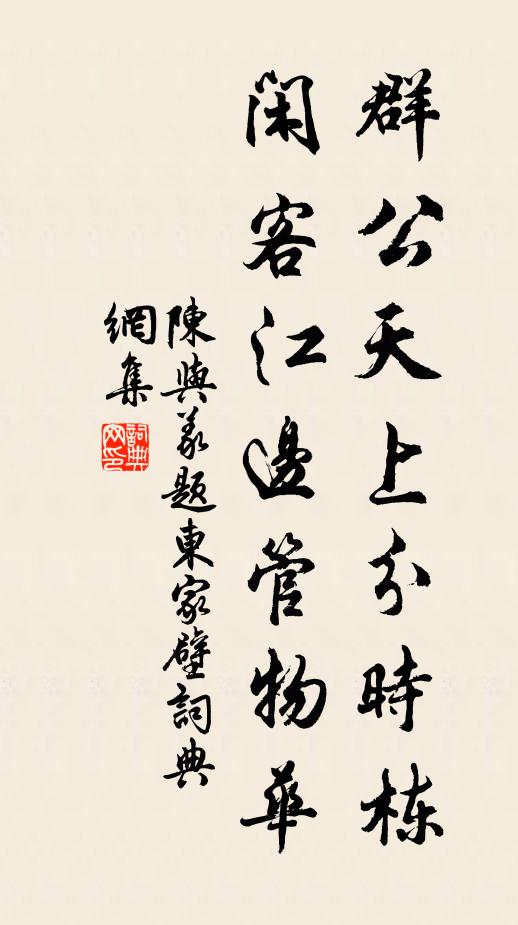 群公天上分時栋
閑客江邊管物華
陳與義題東家壁詞典
網集
詞典
网印